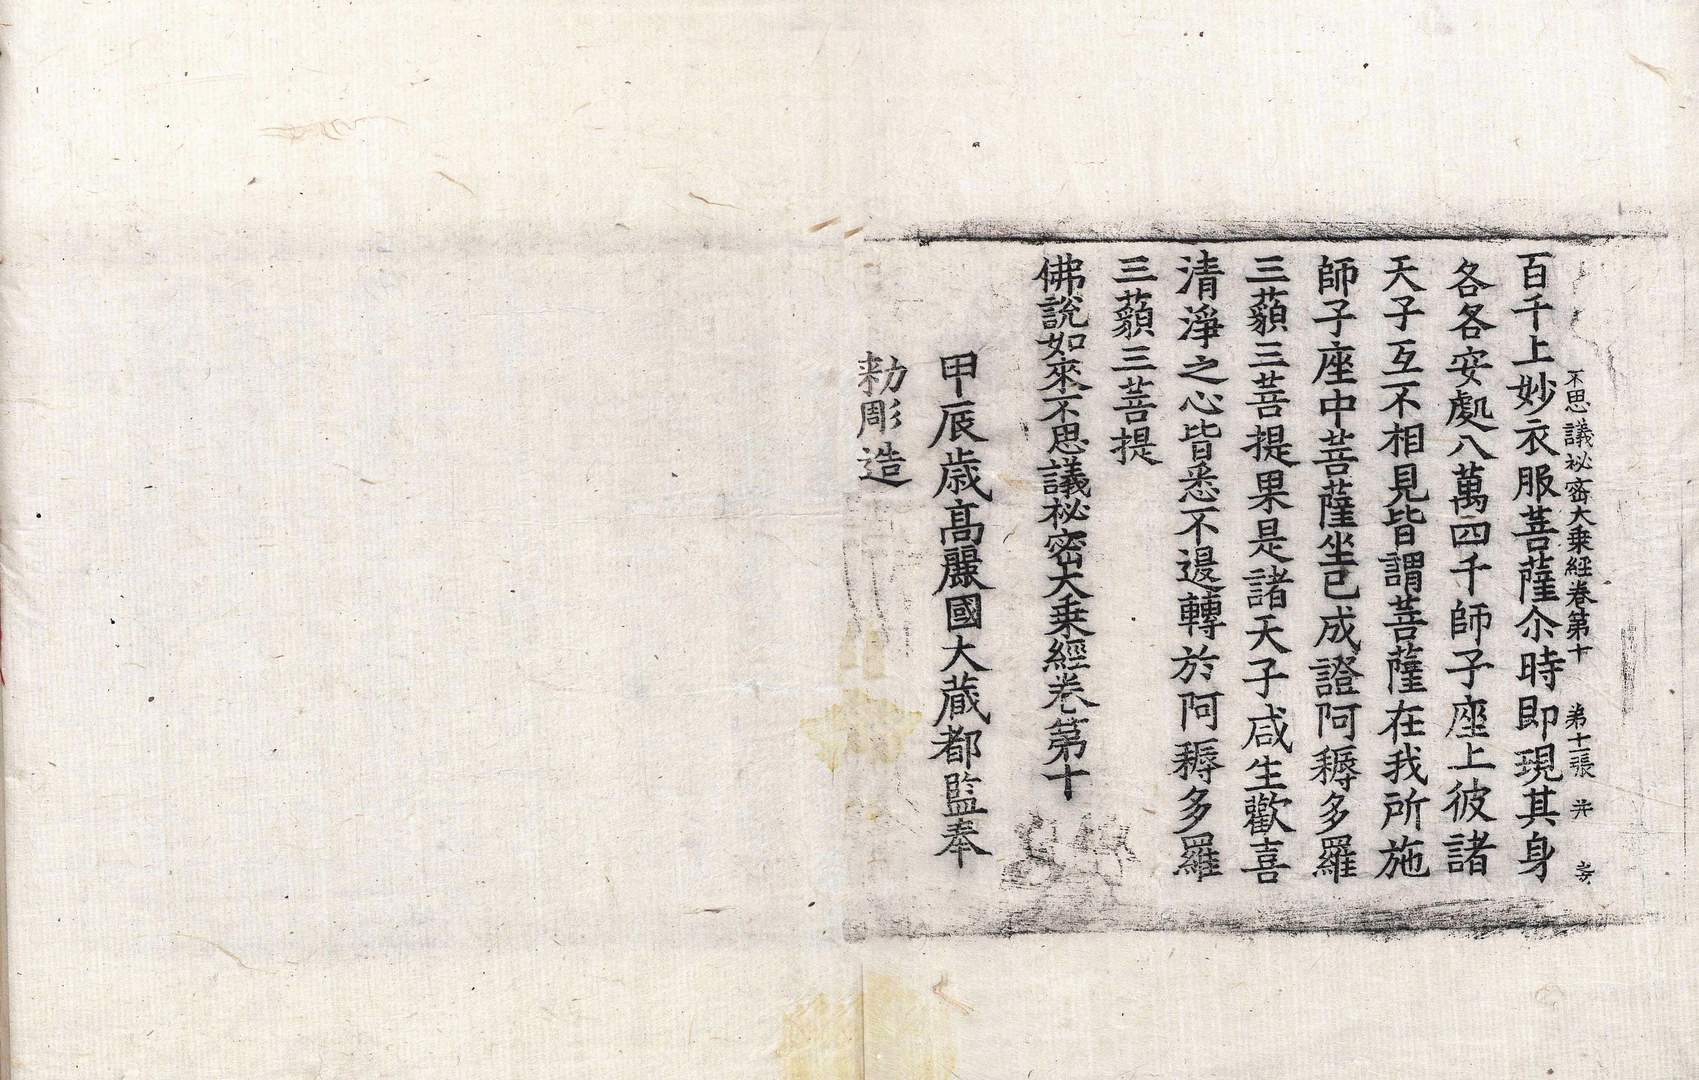 不思議祕密大乗經卷第十 第十二張
百千上妙衣服菩薩尒時即現其身
各各安處八萬四千師子座上彼諸
天子互不相見皆謂菩薩在我所施
師子座中菩薩坐已成證阿耨多羅
三藐三菩提果是諸天子咸生歡喜
清淨之心皆悉不退轉於阿耨多羅
三藐三菩提
佛說如來不思議祕密大乗經卷第十
甲辰歳高麗國大藏都監奉
勑彫造